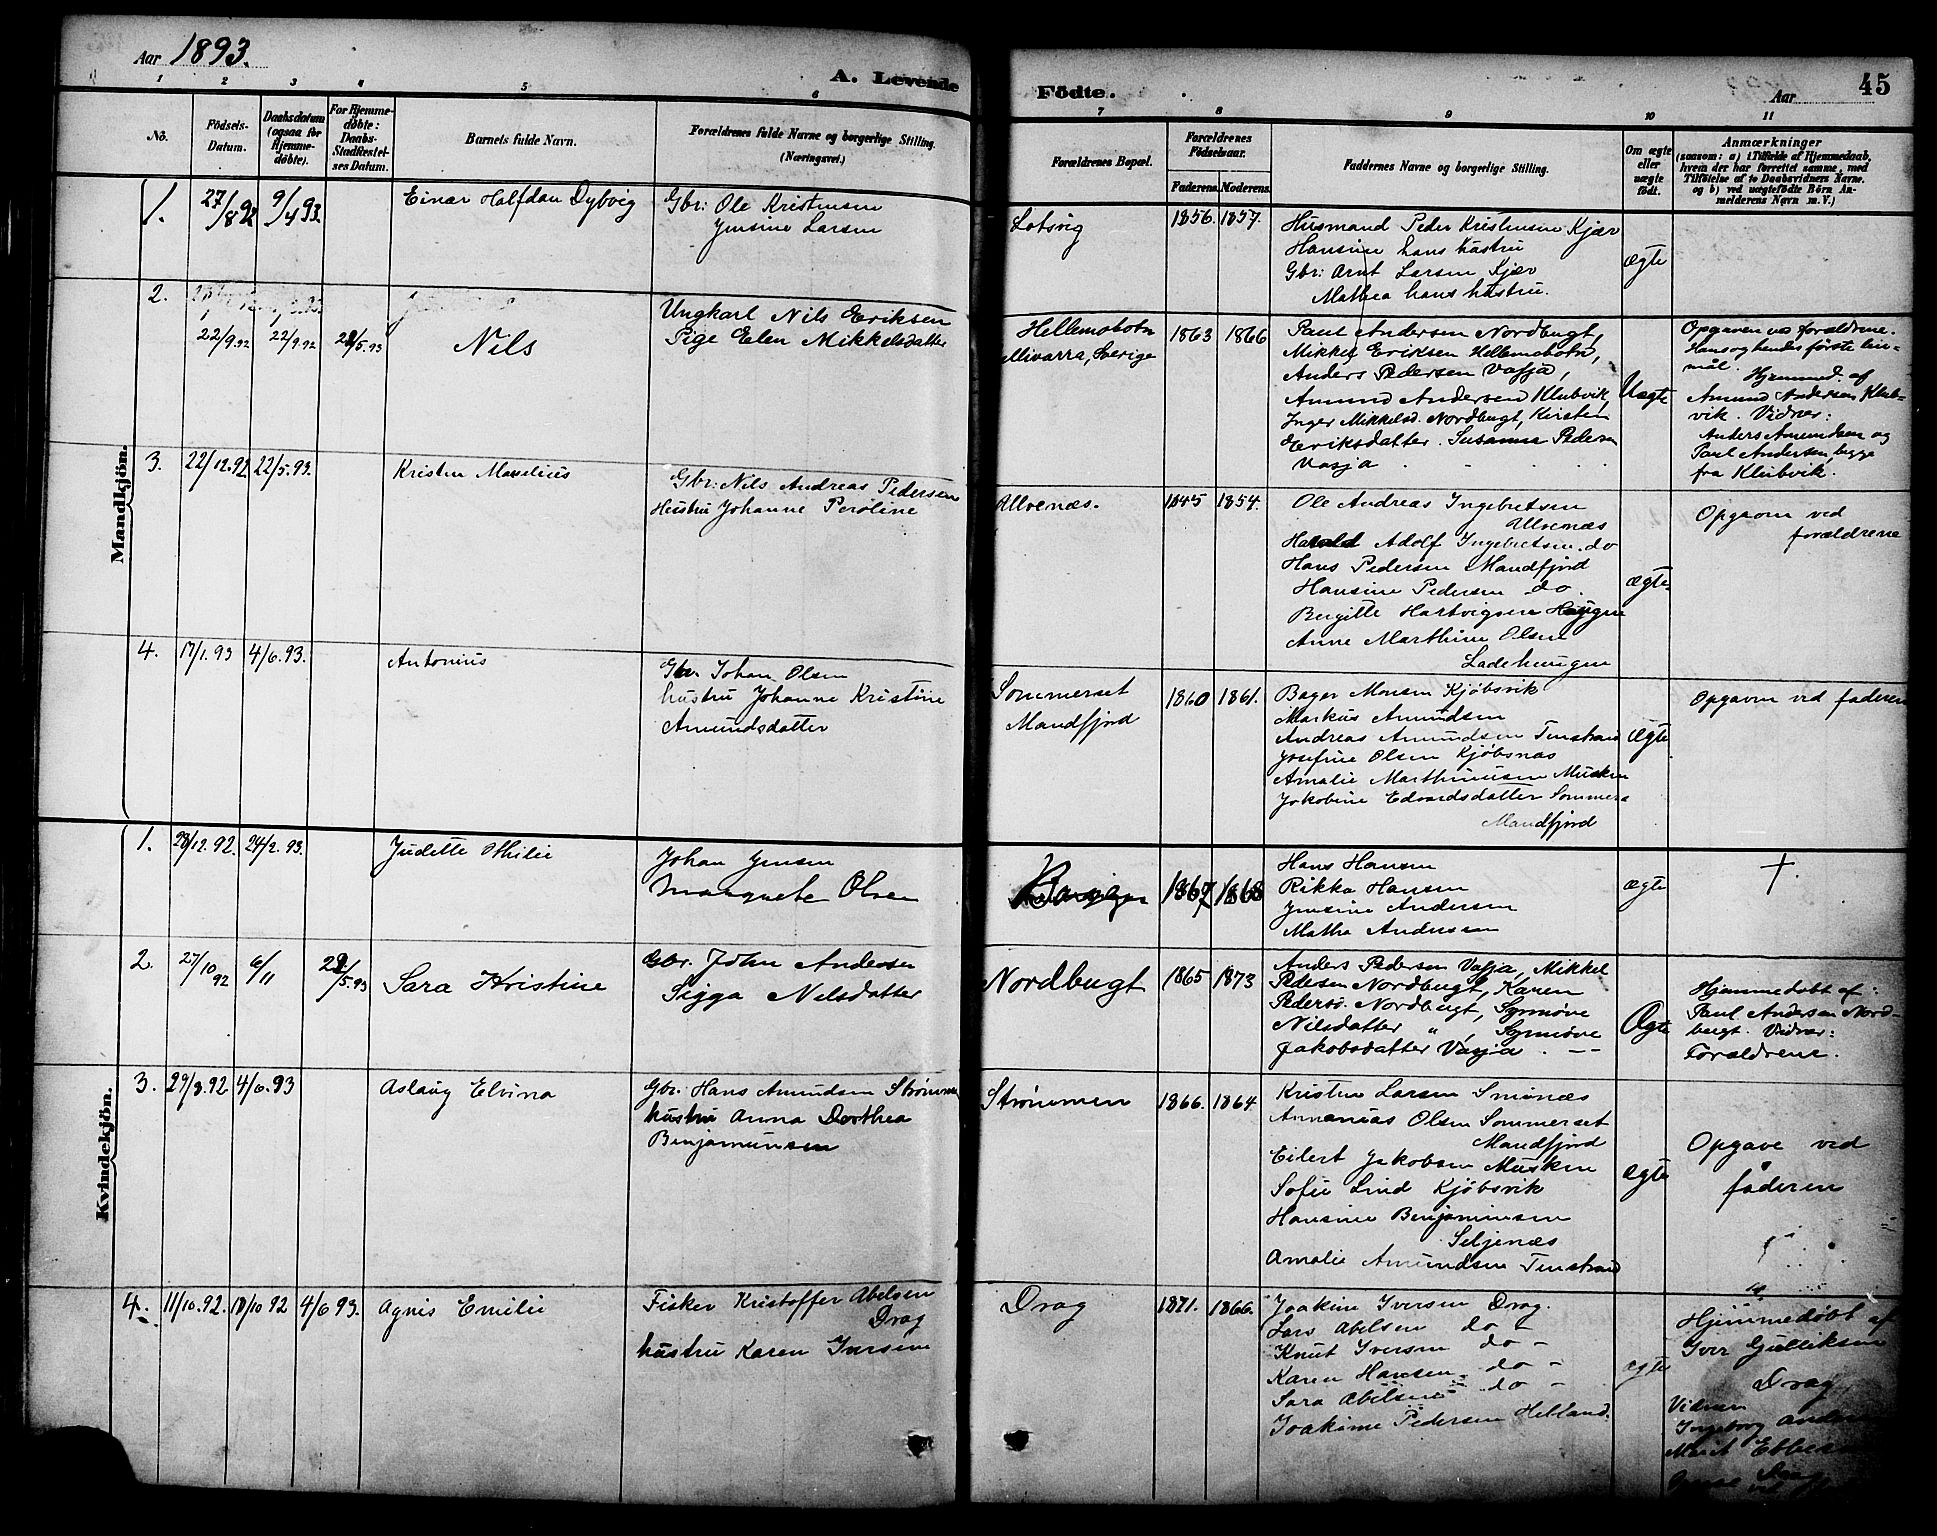 Aar 1893.
A. Levende Födte.
Aar
45
1 2 3 4 5 6 7 8 9 10 11
No.
Födsels-
Datum.
Daabsdatum
(ogsaa for
Hjemme-
döbte).
For Hjemme-
døbte:
Daabs-
Stadfæstel-
ses Datum.
Barnets fulde Navn.
Forældrenes fulde Navne og borgerlige Stilling.
(Næringsvei.)
Forældrenes Bopæl.
Forældrenes
Födselsaar.
Faderens. Moderens.
Faddernes Navne og borgerlige Stilling.
Om ægte
eller
uægte
födt.
Anmærkninger
(saasom: a) i Tilfælde af Hjemmedaab,
hvem der har forrettet samme, med
Tilföielse af to Daabsvidners Navne.
og b) ved uægtefödte Börn An-
melderens Navn m. V.)
Mandkjön.
1.
27/8 92
9/4 93
Einar Halfdan Dybvig
Gbr: Ole Kristensen
Jensine Larsen
Lotsvig
1856. 1857.
Husmand Peder Kristensen Kjær
Hansine hans hustru
Gbr: Arnt Larsen Kjær
Mathea hans hustru.
ægte
2.
22/9.92
22/9.92
22/5.93
Nils
Ungkarl Nils Eriksen
Pige Elen Mikkelsdatter
Hellemobotn
Sverige
1863 1866
Paul Andersen Nordbugt,
Mikkel Eriksen Hellemobotn,
Anders Pedersen Vasja,
Amund Andersen Klubvik,
Inger Mikkelsd. Nordbugt, Kirsten
Eriksdatter. Susanna Pedersen
Vasja . - . - .
Uægte
Opgaven ved forældrene.
Hans og hendes første leir-
mål.
Hjemmed. af
Amund Andersen Klub-
vik. Vidner:
Anders Amundsen og
Paul Andersen, begge
fra Klubvik.
3.
22/12.92
22/5.93.
Kristen Maselius
Gbr: Nils Andreas Pedersen
Hustru Johanne Peroline
Ulvenæs.
1845 1854.
Ole Andreas Ingebretsen
Ulvenæs
Harald Adolf Ingebretsen do
Hans Pedersen Mandfjord
Hansine Pedersen do.
Bergitte Hartvigsen Haugne
Anne Marthine Olsen
Ladehaugen
ægte
Opgaven ved
forældrene
4.
17/1.93
4/6.93.
Antonius
Gbr. Johan Olsen
hustru Johanne Kristine
Amundsdatter
Sommerset
Mandfjord
1860 1861.
Bager Monsen Kjöbsvik
Markus Amundsen
Andreas Amundsen Tenstrand
Josefine Olsen Kjöbsnæs
Amalie Marthinusen Musken
Jakobine Edvardsdatter Sommers
Mandfjord
ægte
Opgaven ved faderen
Kvindekjön.
1.
28/12.92.
24/2.93.
Judette Othilie
Johan Jensen
Margrete Olsen
1867 1868
Hans Hansen
Rikka Hansen
Jensine Andersen
Mathea Andersen
ægte
†.
2.
27/10 92
6/11
22/5.93
Sara Kristine
Gbr. John Andersen
Sigga Nilsdatter
Nordbugt
1865 1873
Anders Pedersen Vasja, Mikkel
Pedersen Nordbugt, Karen
Pedersd. Nordbugt, Synnöve
Nilsdatter " , Synnöve
Jakobsdatter Vasja . - -
Ægte
Hjemmedøbt af:
Paul Andersen Nord-
bugt. Vidner:
Forældrene.
3.
29/8.92
4/6.93
Aslaug Elvina
Gbr: Hans Amundsen Strømmen
hustru Anna Dorthea
Benjaminsen
Strømmen
1866. 1864.
Kristen Larsen Småmæs
Annanias Olsen Sommerset
Mandfjord
Eilert Jakobsen Musken
Sofie Lind Kjöbsvik
Hansine Benjaminsen
Seljenæs
Amalie Amundsen Tenstrand
ægte
Opgave ved
faderen
4.
11/10.92.
18/10 92
4/6 93.
Agnis Emilie
Fisker Kristoffer Abelsen
Drag
hustru Karen Iversen
Drag
1871. 1866.
Joakim Iversen Drag.
Lars Abelsen do -
Knut Iversen do -
Karen Hansen do -
Sara Abelsen do -
Joakime Pedersen Helland.
ægte
Hjemmedøbt af
Iver Gulliksen
Drag
Vidner
Ingeborg
Marit
Drag